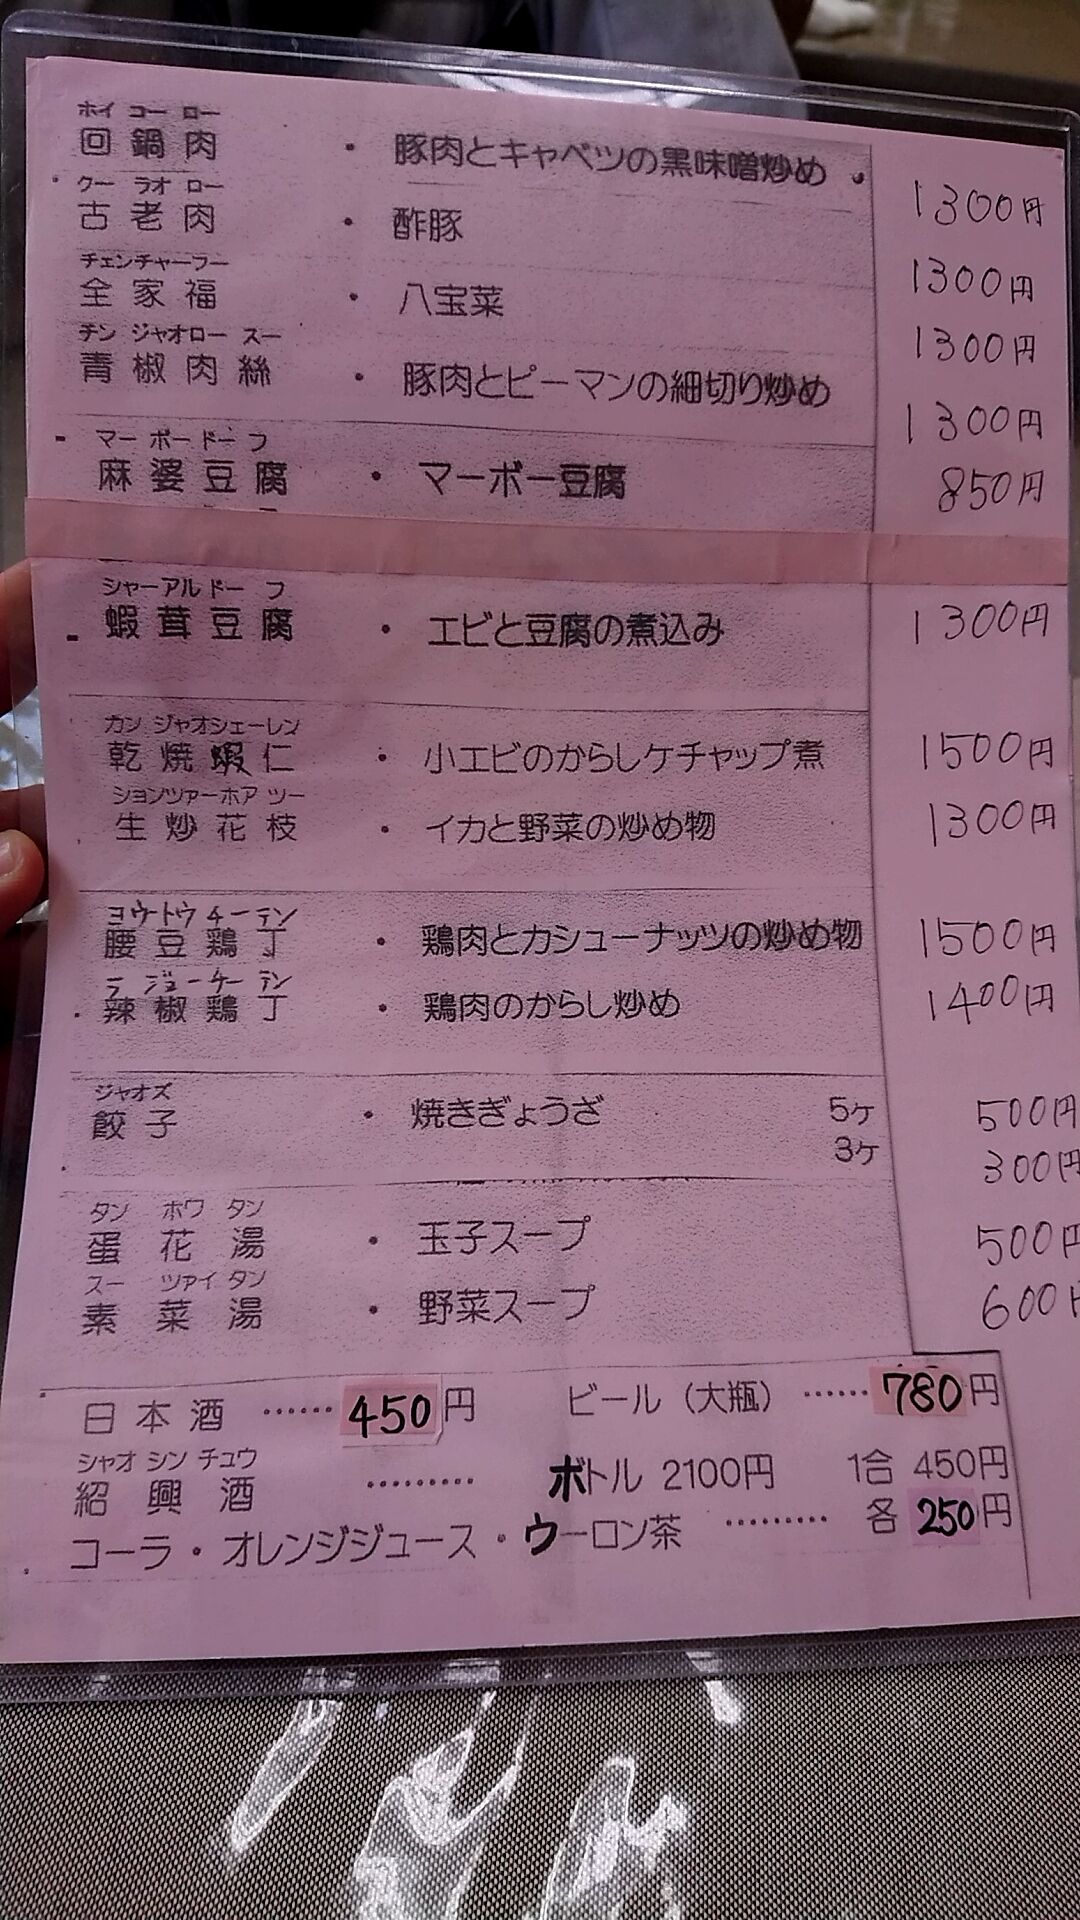 ホイ コー ロー
回鍋肉 ・ 豚肉とキャベツの黒味噌炒め 1300円
クー ラオ ロー
古老肉 ・ 酢豚 1300円
チェンチャーフー
全家福 ・ 八宝菜 1300円
チン ジャオロー スー
青椒肉絲 ・ 豚肉とピーマンの細切り炒め 1300円
マー ボー ドー フ
麻婆豆腐 ・ マーボー豆腐 850円
シャーアル ドー フ
蝦茸豆腐 ・ エビと豆腐の煮込み 1300円
カン ジャオシェーレン
乾焼蝦仁 ・ 小エビのからしケチャップ煮 1500円
ションツァーホア ツー
生炒花枝 ・ イカと野菜の炒め物 1300円
ヨウートウ チーテン
腰豆鶏丁 ・ 鶏肉とカシューナッツの炒め物 1500円
ラ ジョーチー テン
辣椒鶏丁 ・ 鶏肉のからし炒め 1400円
ジャオズ
餃子 ・ 焼きぎょうざ 5ケ 500円
3ケ 300円
タン ホワ タン
蛋花湯 ・ 玉子スープ 500円
スー ツァイ タン
素菜湯 ・ 野菜スープ 600円
日本酒 ⋯⋯ 450円 ビール（大瓶） ⋯⋯ 780円
シャオ シン チュウ
紹興酒 ⋯⋯⋯ ボトル 2100円 1合 450円
コーラ・オレンジジュース・ウーロン茶 ⋯⋯⋯ 各 250円